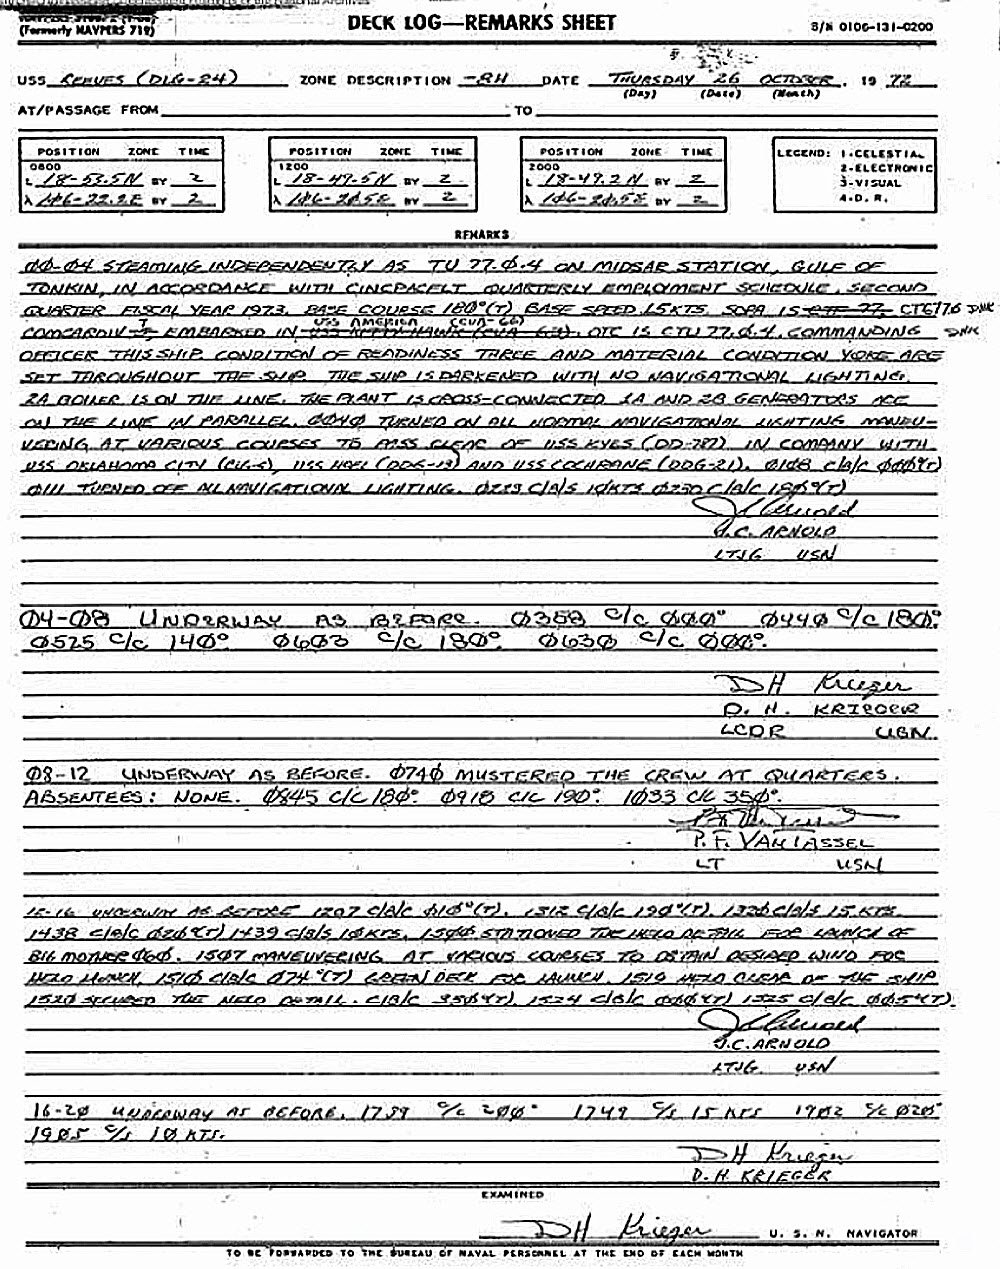 (Formerly NAVPERS 719)
DECK LOG—REMARKS SHEET
S/N 0106-131-0200
USS REEVES (DLG-24) ZONE DESCRIPTION -8H DATE THURSDAY 26 OCTOBER, 19 72
(Day) (Date) (Month)
AT/PASSAGE FROM TO
POSITION ZONE TIME
0800
L 18-53.5N BY 2
λ 106-22.2E BY 2
POSITION ZONE TIME
1200
L 18-47.5N BY 2
λ 106-20.5E BY 2
POSITION ZONE TIME
2000
L 18-49.2N BY 2
λ 106-20.5E BY 2
LEGEND: 1-CELESTIAL
2-ELECTRONIC
3-VISUAL
4-D.R.
REMARKS
00-04 STEAMING INDEPENDENTLY AS TU 77.0.4 ON MIDSAR STATION, GULF OF
TONKIN, IN ACCORDANCE WITH CINCPACFLT QUARTERLY EMPLOYMENT SCHEDULE, SECOND
QUARTER FISCAL YEAR 1973. BASE COURSE 180°(T) BASE SPEED 15KTS. SOPA IS CTF 77, CTG 77.6 DHK
USS AMERICA (CVA-66)
COMCARDIV EMBARKED IN USS KITTY HAWK (CVA-63). OTC IS CTU 77.0.4, COMMANDING DHK
OFFICER THIS SHIP. CONDITION OF READINESS THREE AND MATERIAL CONDITION YOKE ARE
SET THROUGHOUT THE SHIP. THE SHIP IS DARKENED WITH NO NAVIGATIONAL LIGHTING.
2A BOILER IS ON THE LINE. THE PLANT IS CROSS-CONNECTED 1A AND 2B GENERATORS ARE
ON THE LINE IN PARALLEL. 0040 TURNED ON ALL NORMAL NAVIGATIONAL LIGHTING MANEU-
VERING AT VARIOUS COURSES TO PASS CLEAR OF USS KYES (DD-787) IN COMPANY WITH
USS OKLAHOMA CITY (CLG-5), USS HOEL (DDG-13) AND USS COCHRANE (DDG-21). 0108 C/B/C 000°(T)
0111 TURNED OFF ALL NAVIGATIONAL LIGHTING. C/B/S 10KTS 0230 C/B/C 180°(T)
J.C. ARNOLD
LTJG USN
04-08 UNDERWAY AS BEFORE. 0358 C/C 000° 0440 C/C 180°.
0525 C/C 140° 0603 C/C 180°. 0630 C/C 000°.
DH Krieger
D. H. KRIEGER
LCDR USN
08-12 UNDERWAY AS BEFORE. 0740 MUSTERED THE CREW AT QUARTERS.
ABSENTEES: NONE. 0845 C/C 180°. 0918 C/C 190°. 1033 C/C 350°.
P. F. VANTASSEL
LT USN
12-16 UNDERWAY AS BEFORE 1207 C/B/C 010°(T). 1312 C/B/C 190°(T). 1320 C/B/S 15 KTS.
1438 C/B/C 020°(T) 1439 C/B/S 10KTS. 1500 STATIONED THE HELO DETAIL FOR LAUNCH OF
BIG MOTHER 060. 1507 MANEUVERING AT VARIOUS COURSES TO OBTAIN DESIRED WIND FOR
HELO LAUNCH. 1510 C/B/C 074°(T) GREEN DECK FOR LAUNCH. 1519 HELO CLEAR OF THE SHIP
1520 SECURED THE HELO DETAIL. C/B/C 350°(T). 1524 C/B/C 000°(T) 1525 C/B/C 005°(T).
J.C. ARNOLD
LTJG USN
16-20 UNDERWAY AS BEFORE. 1739 C/C 200° 1749 C/S 15 KTS 1902 C/C 020°
1905 C/S 10 KTS.
DH Krieger
D. H. KRIEGER
EXAMINED
DH Krieger U. S. N. NAVIGATOR
TO BE FORWARDED TO THE BUREAU OF NAVAL PERSONNEL AT THE END OF EACH MONTH